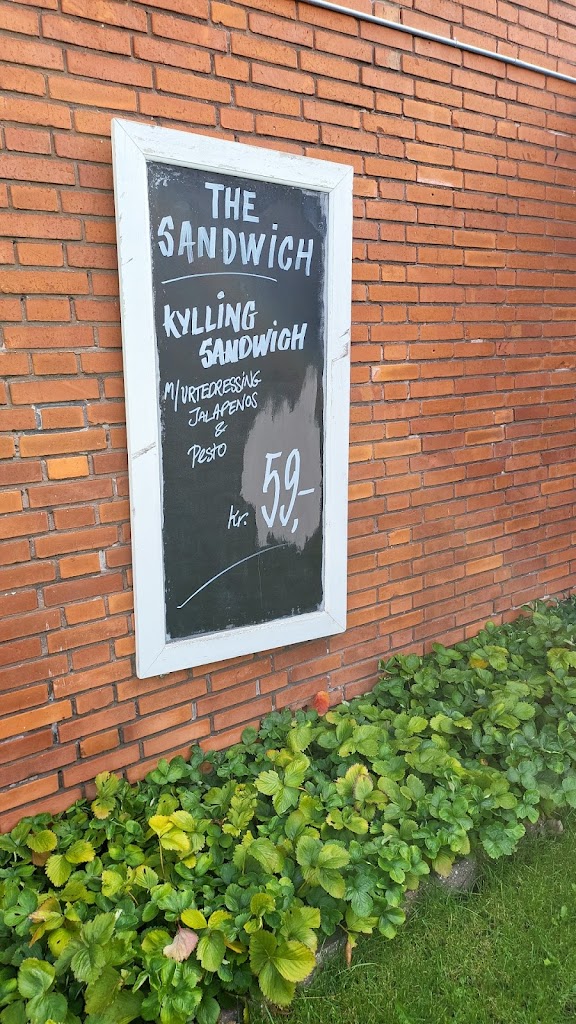 THE
SANDWICH
KYLLING
SANDWICH
M/URTEDRESSING
JALAPENOS
&
Pesto
kr. 59,-